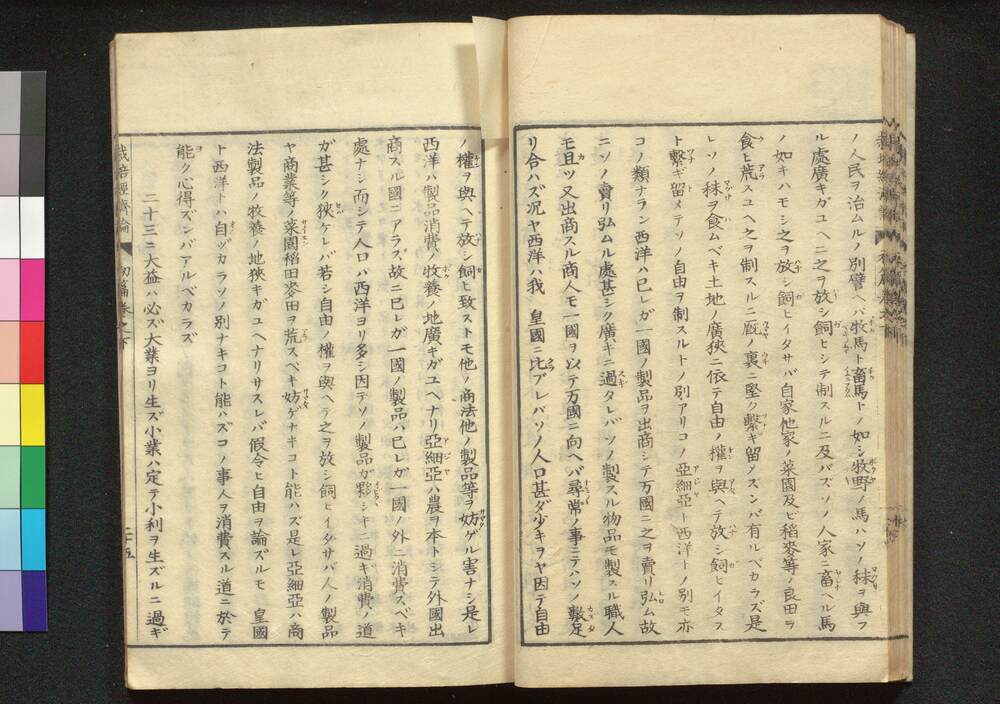 ノ人民ヲ治ムルノ別譬ヘバ牧馬ト畜馬トノ如シ牧野ノ馬ハソノ秣ヲ與フ
ル處廣キガユヘニ之ヲ放シ飼ヒシテ制スルニ及バズソノ人家ニ畜ヘル馬
ノ如キハモシ之ヲ放シ飼ヒイタサバ自家他家ノ菜園及ビ稻麥等ノ良田ヲ
食ヒ荒スユヘ之ヲ制スルニ厩ノ裏ニ堅ク繫ギ留メズンバ有ルベカラズ是
レソノ秣ヲ食ムベキ土地ノ廣狹ニ依テ自由ノ權ヲ與ヘテ放シ飼ヒイタス
ト繫ギ留メテソノ自由ヲ制スルトノ別アリコノ亞細亞ト西洋トノ別モ亦
コノ類ナラン西洋ハ已レガ一國ノ製品ヲ出商シテ万國ニ之ヲ賣リ弘ム故
ニソノ賣リ弘ムル處甚シク廣キニ過タレバソノ製スル物品モ製スル職人
モ且ツ又出商スル商人モ一國ヲ以テ万國ニ向ヘバ尋常ノ事ニテハソノ數足
リ合ハズ况ヤ西洋ハ我　皇國ニ比ブレバソノ人口甚ダ少キヲヤ因テ自由
ノ權ヲ與ヘテ放シ飼ヒ致ストモ他ノ商法他ノ製品等ヲ妨ゲル害ナシ是レ
西洋ハ製品消費ノ牧養ノ地廣キガユヘナリ亞細亞ハ農ヲ本トシテ外國出
商スル國ニアラズ故ニ已レガ一國ノ製品ハ已レガ一國ノ外ニ消費スベキ
處ナシ而シテ人口ハ西洋ヨリ多シ因テソノ製品ガ夥シキニ過ギ消費ノ道
ガ甚シク狹ケレバ若シ自由ノ權ヲ與ヘテ之ヲ放シ飼ヒイタサバ人ノ製品
ヤ商業等ノ菜園稻田麥田ヲ荒スベキ妨ゲナキコト能ハズ是レ亞細亞ハ商
法製品ノ牧養ノ地狹キガユヘナリサスレバ假令ヒ自由ヲ論ズルモ　皇國
ト西洋トハ自ヅカラソノ別ナキコト能ハズコノ事人ヲ消費スル道ニ於テ
能ク心得ズンバアルベカラズ
二十三ニ大益ハ必ズ大業ヨリ生ズ小業ハ定テ小利ヲ生ズルニ過ギ
栽培經濟論　初篇卷之下　二十五